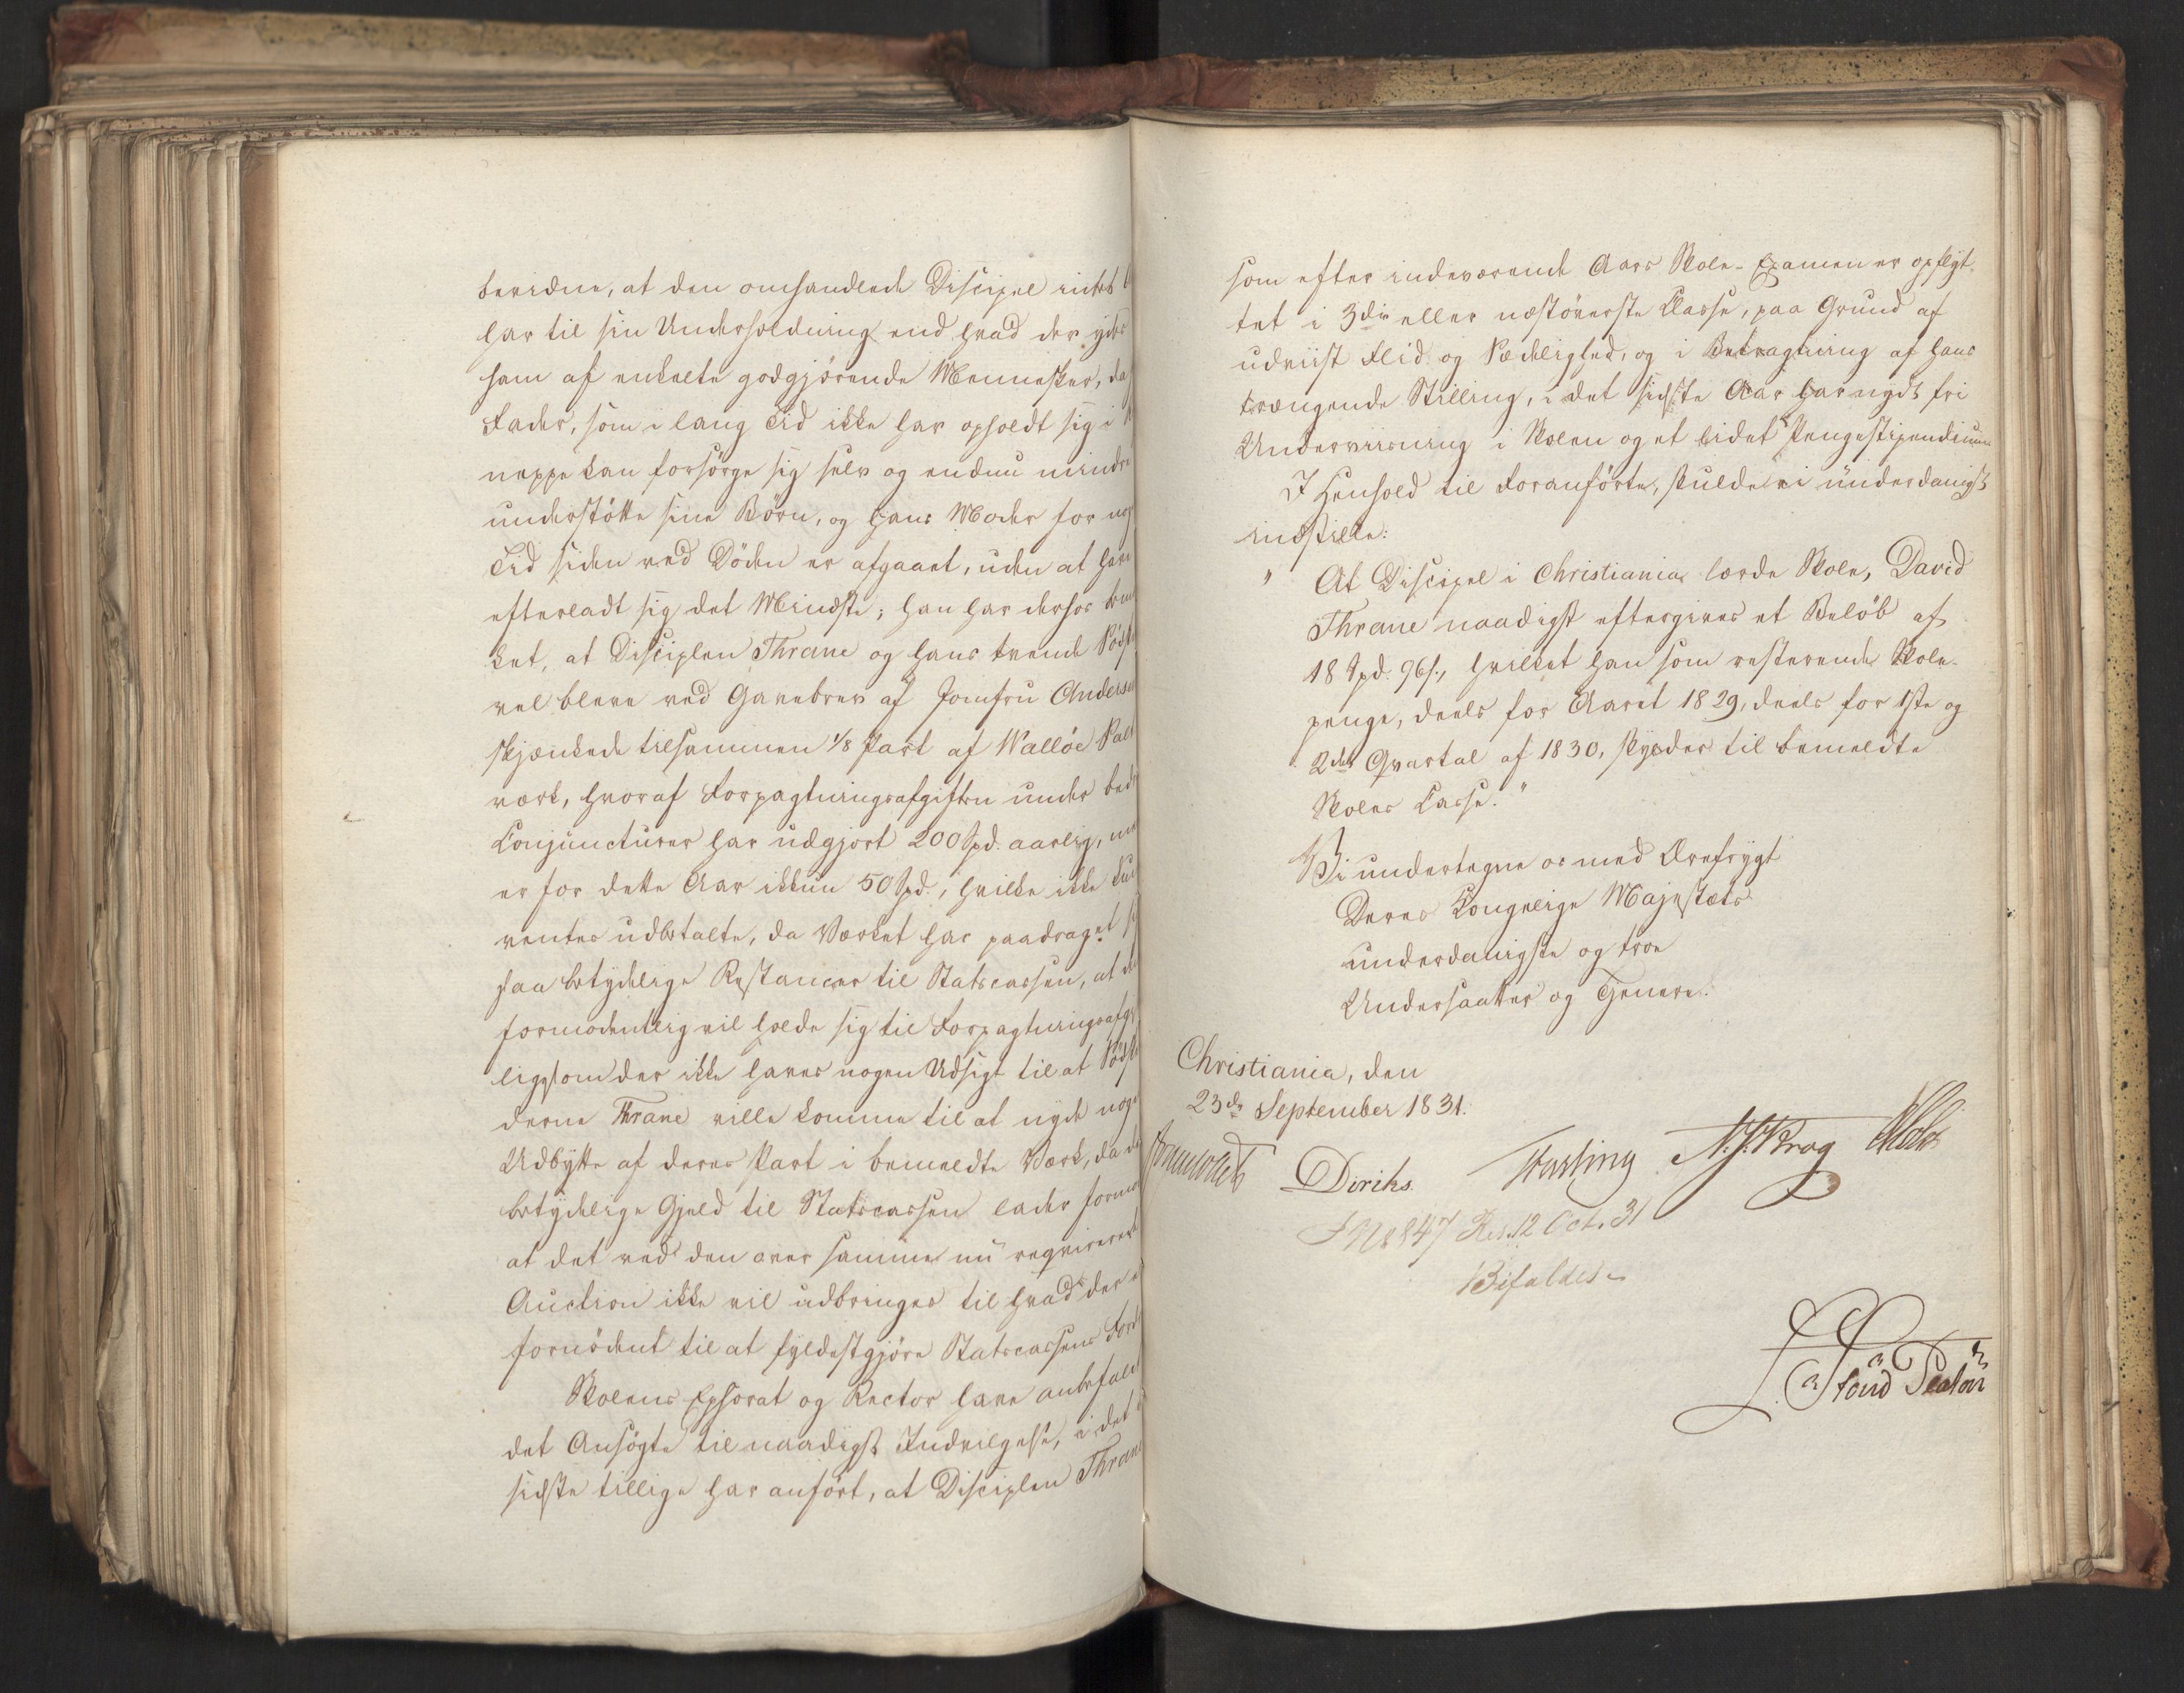 bevidne, at den omhandlede Discipel intet
har til sin Underholdning end hvad der yde
ham af enkelte godgjörende Mennesker, da
Fader, som i lang Tid ikke har opholdt sig i
neppe kan forsörge sig selv og endnu mindre
understötte sine Börn, og hans Moder for nog
Tid siden ved Döden er afgaaet, uden at have
efterladt sig det Mindste; han har derhos be
ket, at Disciplen Thrane og hans trende Södsk
vel bleve ved Gavebrev af Jomfru Anderse
skjænkede tilsammen 1/8 Part af Walløe Salt
værk, hvoraf Forpagtningsafgiften under bed
Conjuncturer har udgjort 200 Spd. aarlig, me
er for dette Aar ikkun 50 Spd., hvilke ikke kun
ventes udbetalte, da Værket har paadraget s
saa betydelige Restancer til Statscassen, at de
formodentlig vil holde sig til Forpagtningsafg
ligesom der ikke haves nogen Udsigt til at Södsk
dene Thrane ville komme til at nyde noge
Udbytte af deres Part i bemeldte Værk, da d
betydelige Gjeld til Statscassen lader formo
at det ved den over samme nu reqvirerede
Auction ikke vil udbringes til hvad der e
fornödent til at fyldestgjöre Statscassens Ford
Skolens Ephorat og Rector have anbefalet
det Ansögte til naadigst Indvilgelse, i det
sidste tillige har anfört, at Disciplen Thrane
som efter indeværende Aars Skole-Examen er opflyt
tet i 3die eller næstöverste Classe, paa Grund af
udviist Flid og Sædelighed, og i Betragtning af hans
trængende Stilling, i det sidste Aar har nydt fri
Underviisning i Skolen og et lidet Pengestipendium
I Henhold til Foranförte, skulde vi underdanigst
indstille:
" At Discipel i Christiania lærde Skole, David
Thrane naadigst eftergives et Belöb af
18 Spd. 96 s., hvilket han som resterende Skole-
penge, deels for Aaret 1829, deels for 1ste og
2det Qvartal af 1830, skylder til bemeldte
Skoles Casse."
Vi undertegne os med Ærefrygt
Deres Kongelige Majestæts
underdanigste og troe
Undersaatter og Tjenere.
Christiania, den
23de September 1831.
Diriks. N. J. Krog Holst
No 847 Res. 12 Oct. 31
Bifaldes